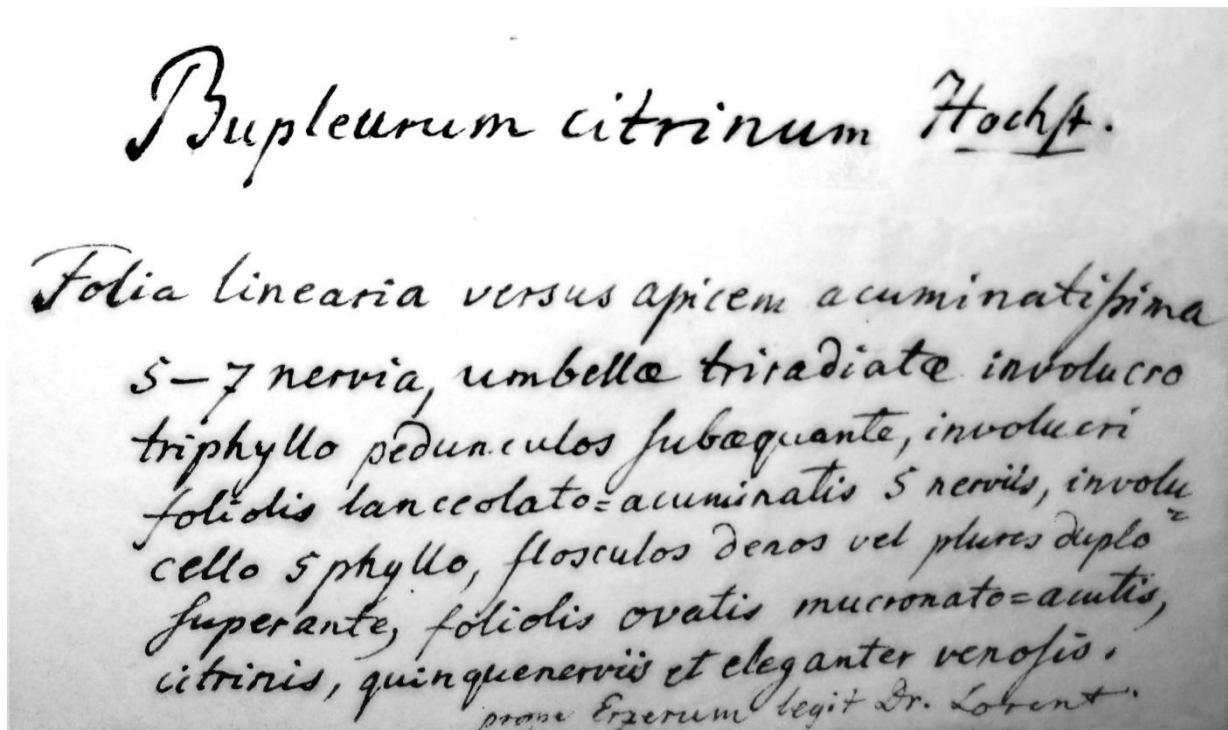 Bupleurum citrinum Hochſt.
Folia linearia versus apicem acuminatiſsima
5–7 nervia, umbellæ triradiatæ involucro
triphyllo pedunculos ſubæquante, involucri
foliolis lanceolato=acuminatis 5 nerviis, involu=
cello 5 phyllo, flosculos denos vel plures duplo
ſuperante, foliolis ovatis mucronato=acutis,
citrinis, quinquenerviis et eleganter venoſis.
prope Erzerum legit Dr. Lorent.